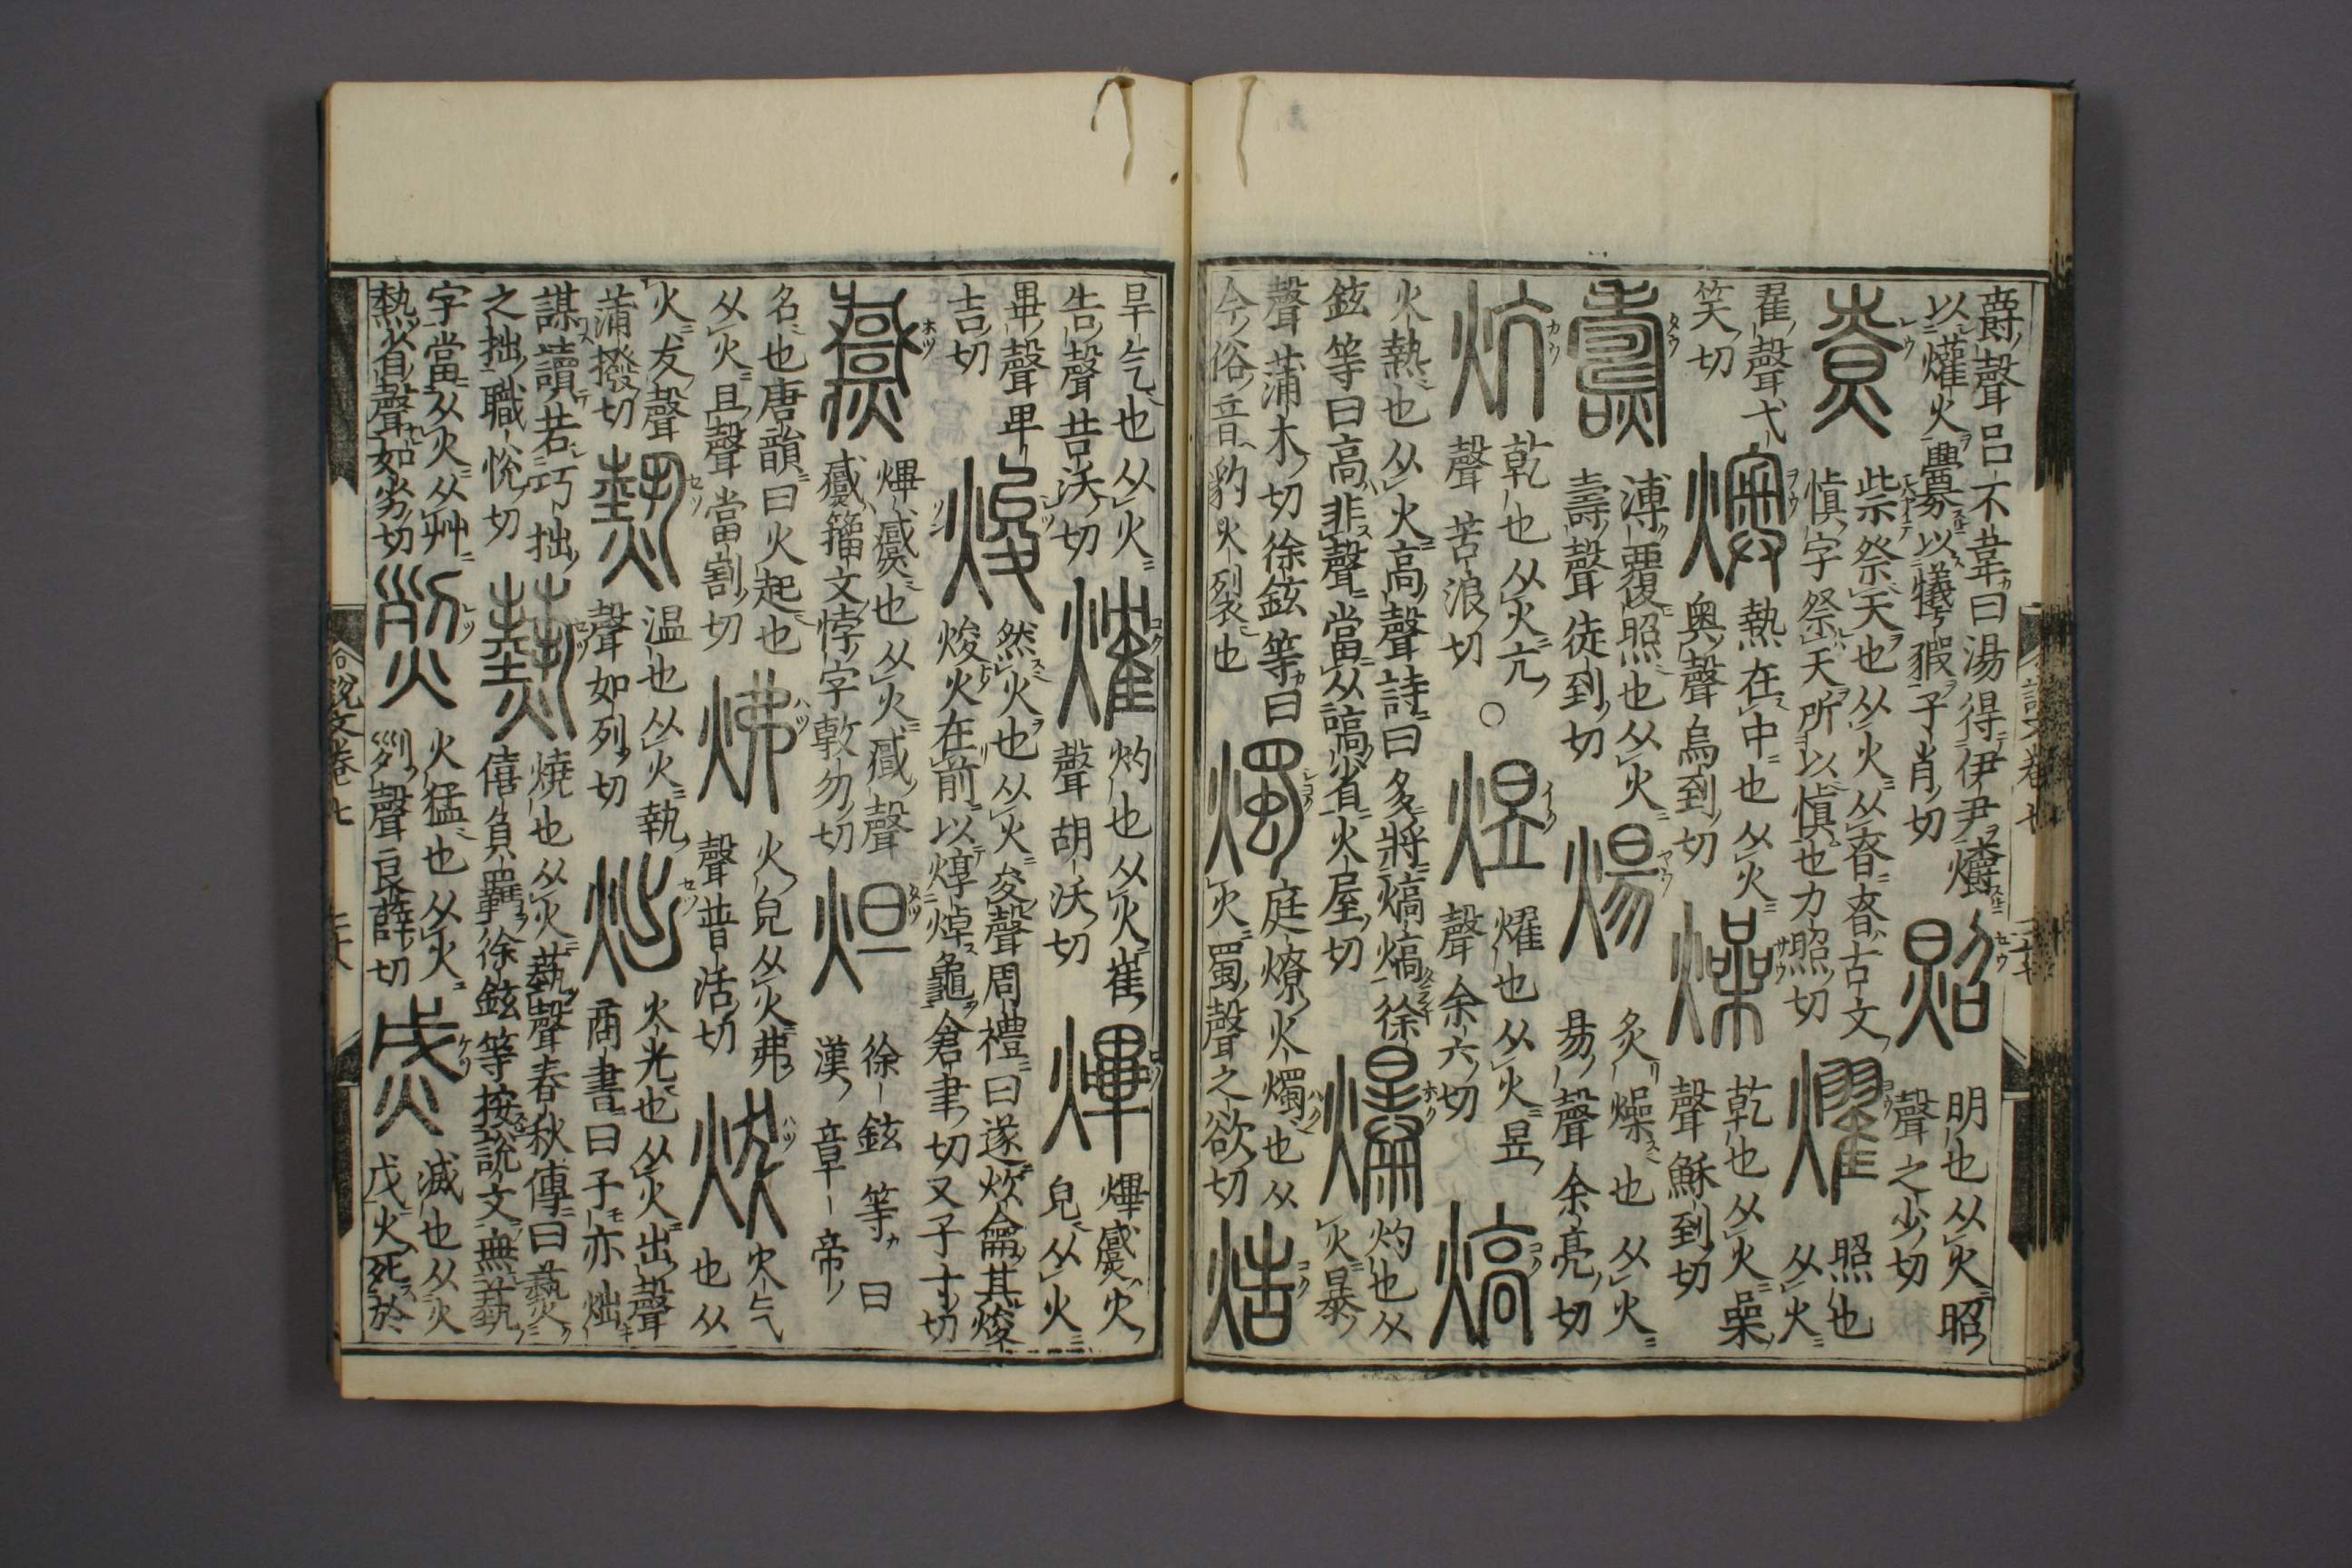 爵聲呂不韋曰湯得伊尹爝
以爟火釁以犧豭子肖切
照
明也从火昭
聲之少切
尞
祡祭天也从火从昚昚古文
慎字祭天所以慎也力照切
燿
照也
从火
翟聲弋
笑切
燠
熱在中也从火
奧聲烏到切
燥
乾也从火喿
聲穌到切
燾
溥覆照也从火
壽聲徒到切
煬
炙燥也从火
昜聲余亮切
炕
乾也从火亢
聲苦浪切
煜
燿也从火昱
聲余六切
熇
火熱也从火高聲詩曰多將熇熇徐
鉉等曰高非聲當从嗃省火屋切
爆
灼也从
火暴
聲蒲木切徐鉉等曰
今俗音豹火裂也
燭
庭燎火燭也从
火蜀聲之欲切
焅
旱气也从火
告聲苦沃切
㸌
灼也从火隺
聲胡沃切
熚
熚㷶火
皃从火
畢聲卑
吉切
焌
然火也从火夋聲周禮曰遂炊籥其焌
焌火在前以焞焯龜倉聿切又子寸切
熚㷶也从火聲
籀文悖字敷勿切
炟
徐鉉等曰
漢章帝
名也唐韻曰火起也
从火旦聲當割切
炥
火皃从火弗
聲普活切
炦
火气
也从
火犮聲
蒲撥切
熱
温也从火執
聲如列切
炪
火光也从火出聲
商書曰予亦炪
謀讀若巧拙
之拙職悅切
爇
燒也从火蓺聲春秋傳曰爇
僖負羈徐鉉等按說文無蓺
字當从火从艸
熱省聲如劣切
烈
火猛也从火
列聲良薛切
烕
滅也从火
戌火死於
說文卷七